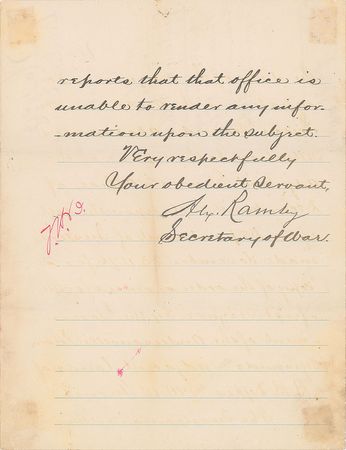 reports that that office is
unable to render any infor-
-mation upon the subject.
Very respectfully
Your obedient servant,
Alex. Ramsey
Secretary of War.